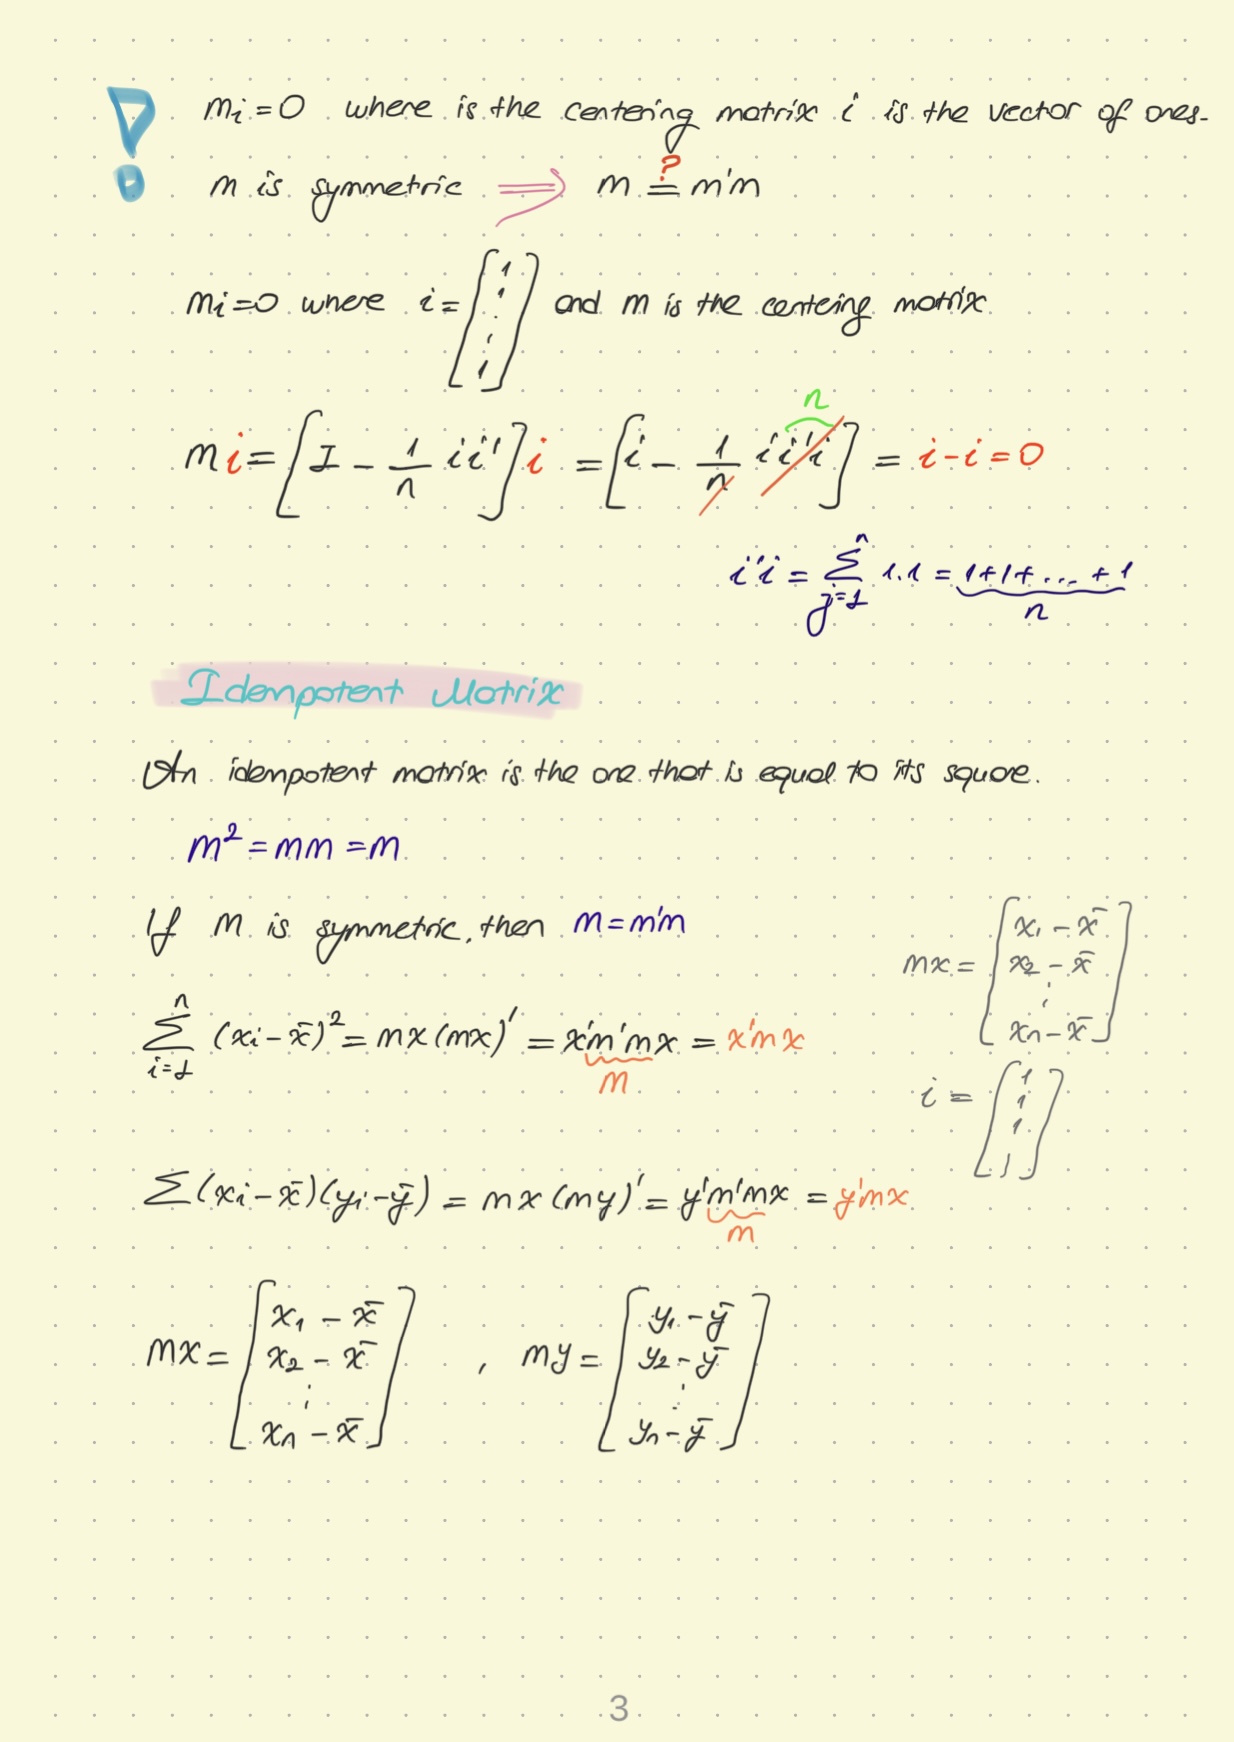 mi=0 where is the centering matrix i is the vector of ones.
m is symmetric ⟹ m =? m'm
mi=0 where i=[1 1 . . 1] and m is the centeing matrix
mi=[I - 1/n ii']i = [i - 1/n ii'i] = i-i=0
n
i'i = Σ_{j=1}^{n} 1.1 = 1+1+...+1
n
Idempotent Matrix
An idempotent matrix is the one that is equal to its square.
m²=mm=m
If M is symmetric, then m=m'm
mx = [x₁ - x̄ x₂ - x̄ ⋮ xn - x̄]
Σ_{i=1}^{n} (xi-x̄)² = mx(mx)' = x'm'mx = x'mx
m
i = [1 1 1 1]
Σ(xi-x̄)(yi-ȳ) = mx(my)' = y'm'mx = y'mx
m
mx = [x₁ - x̄ x₂ - x̄ ⋮ xn - x̄] , my = [y₁ - ȳ y₂ - ȳ ⋮ yn - ȳ]
3